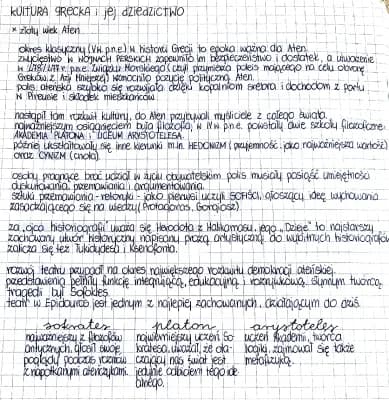 KULTURA GRECKA i jej DZIEDZICTWO
* złoty wiek Aten
okres klasyczny (V w p.n.e) w historii Grecji to epoka ważna dla Aten.
ZWYCIĘSTWO W WOJNACH PERSKICH zapewniło im bezpieczeństwo i dostatek, a utworzenie
w p.n.e. Związku Morskiego (czyli przymierza poleis mającego na celu obronę
Greków z Azji Mniejszej) wzmocniło pozycję polityczną Aten.
polis ateńska szybko się rozwijała dzięki kopalniom srebra i dochodom z portu
w Pireusie i składek mieszkańców.
nastąpił tam rozkwit kultury, do Aten przybywali myśliciele z całego świata.
najważniejszym osiągnięciem była filozofia, w IV w p.n.e. powstały dwie szkoły filozoficzne:
AKADEMIA PLATONA i LICEUM ARYSTOTELESA.
później ukształtowały się inne kierunki m.in. HEDONIZM (przyjemność jako najważniejsza wartość)
oraz CYNIZM (cnota).
osoby pragnące brać udział w życiu obywatelskim polis musiały posiąść umiejętność
dyskutowania, przemawiania i argumentowania.
sztuki przemawiania - retoryki - jako pierwsi uczyli SOFIŚCI, głoszący ideę wychowania
zasadzającego się na wiedzy (Protagoras, Gorgiasz).
za „ojca historiografii” uważa się Herodota z Halikarnasu, jego „Dzieje” to najstarszy
zachowany utwór historyczny napisany prozą artystyczną. do wybitnych historiografów
zalicza się też Tukidydesa i Ksenofonta.
rozwój teatru przypadł na okres największego rozkwitu demokracji ateńskiej.
przedstawienia pełniły funkcję integrującą, edukacyjną i rozrywkową. słynnym twórcą
tragedii był Sofokles.
teatr w Epidauros jest jednym z najlepiej zachowanych, działającym do dziś.
sokrates
najważniejszy z filozofów
antycznych, głosił swoje
poglądy podczas rozmów
z napotkanymi ateńczykami.
platon
najwybitniejszy uczeń So-
kratesa, uważał, że ota-
czający nas świat jest
jedynie odbiciem tego ide-
alnego.
arystoteles
uczeń Akademii, twórca
logiki, zajmował się także
metafizyką.